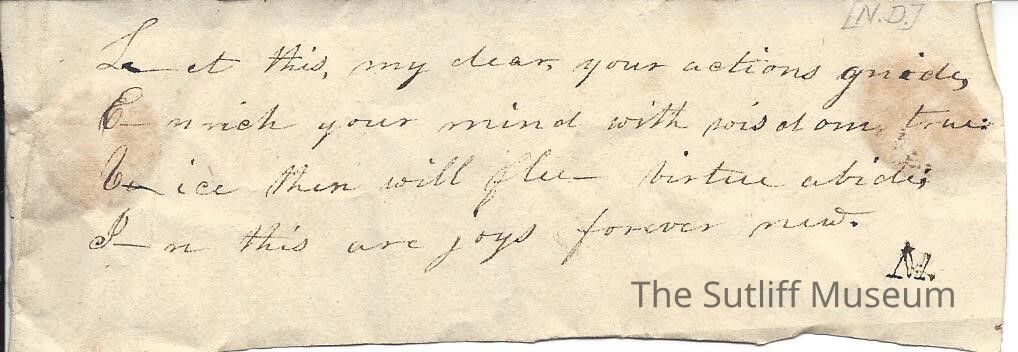 [N.D.]
Let this, my dear, your actions guide,
Enrich your mind with wisdom, true:
Vice then will flee virtue abide;
In this are joys forever new.
M.
The Sutliff Museum